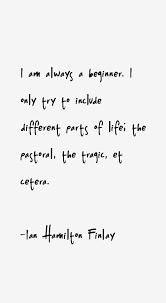 I am always a beginner. I
only try to include
different parts of life; the
pastoral, the tragic, et
cetera.
-Ian Hamilton Finlay